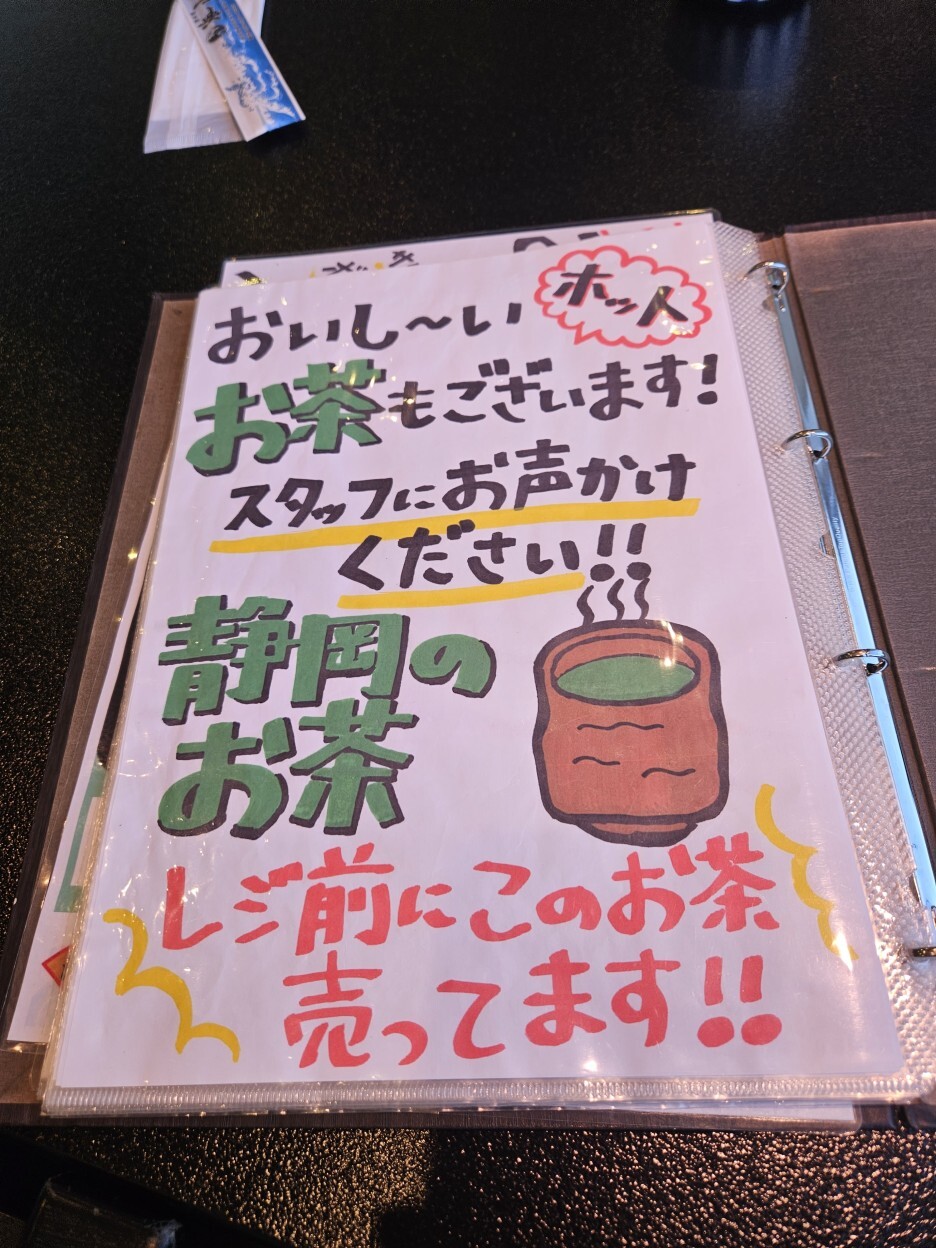 おいし〜い
ホッ人
お茶もございます!
スタッフにお声かけ
ください!!
静岡の
お茶
レジ前にこのお茶
売ってます!!